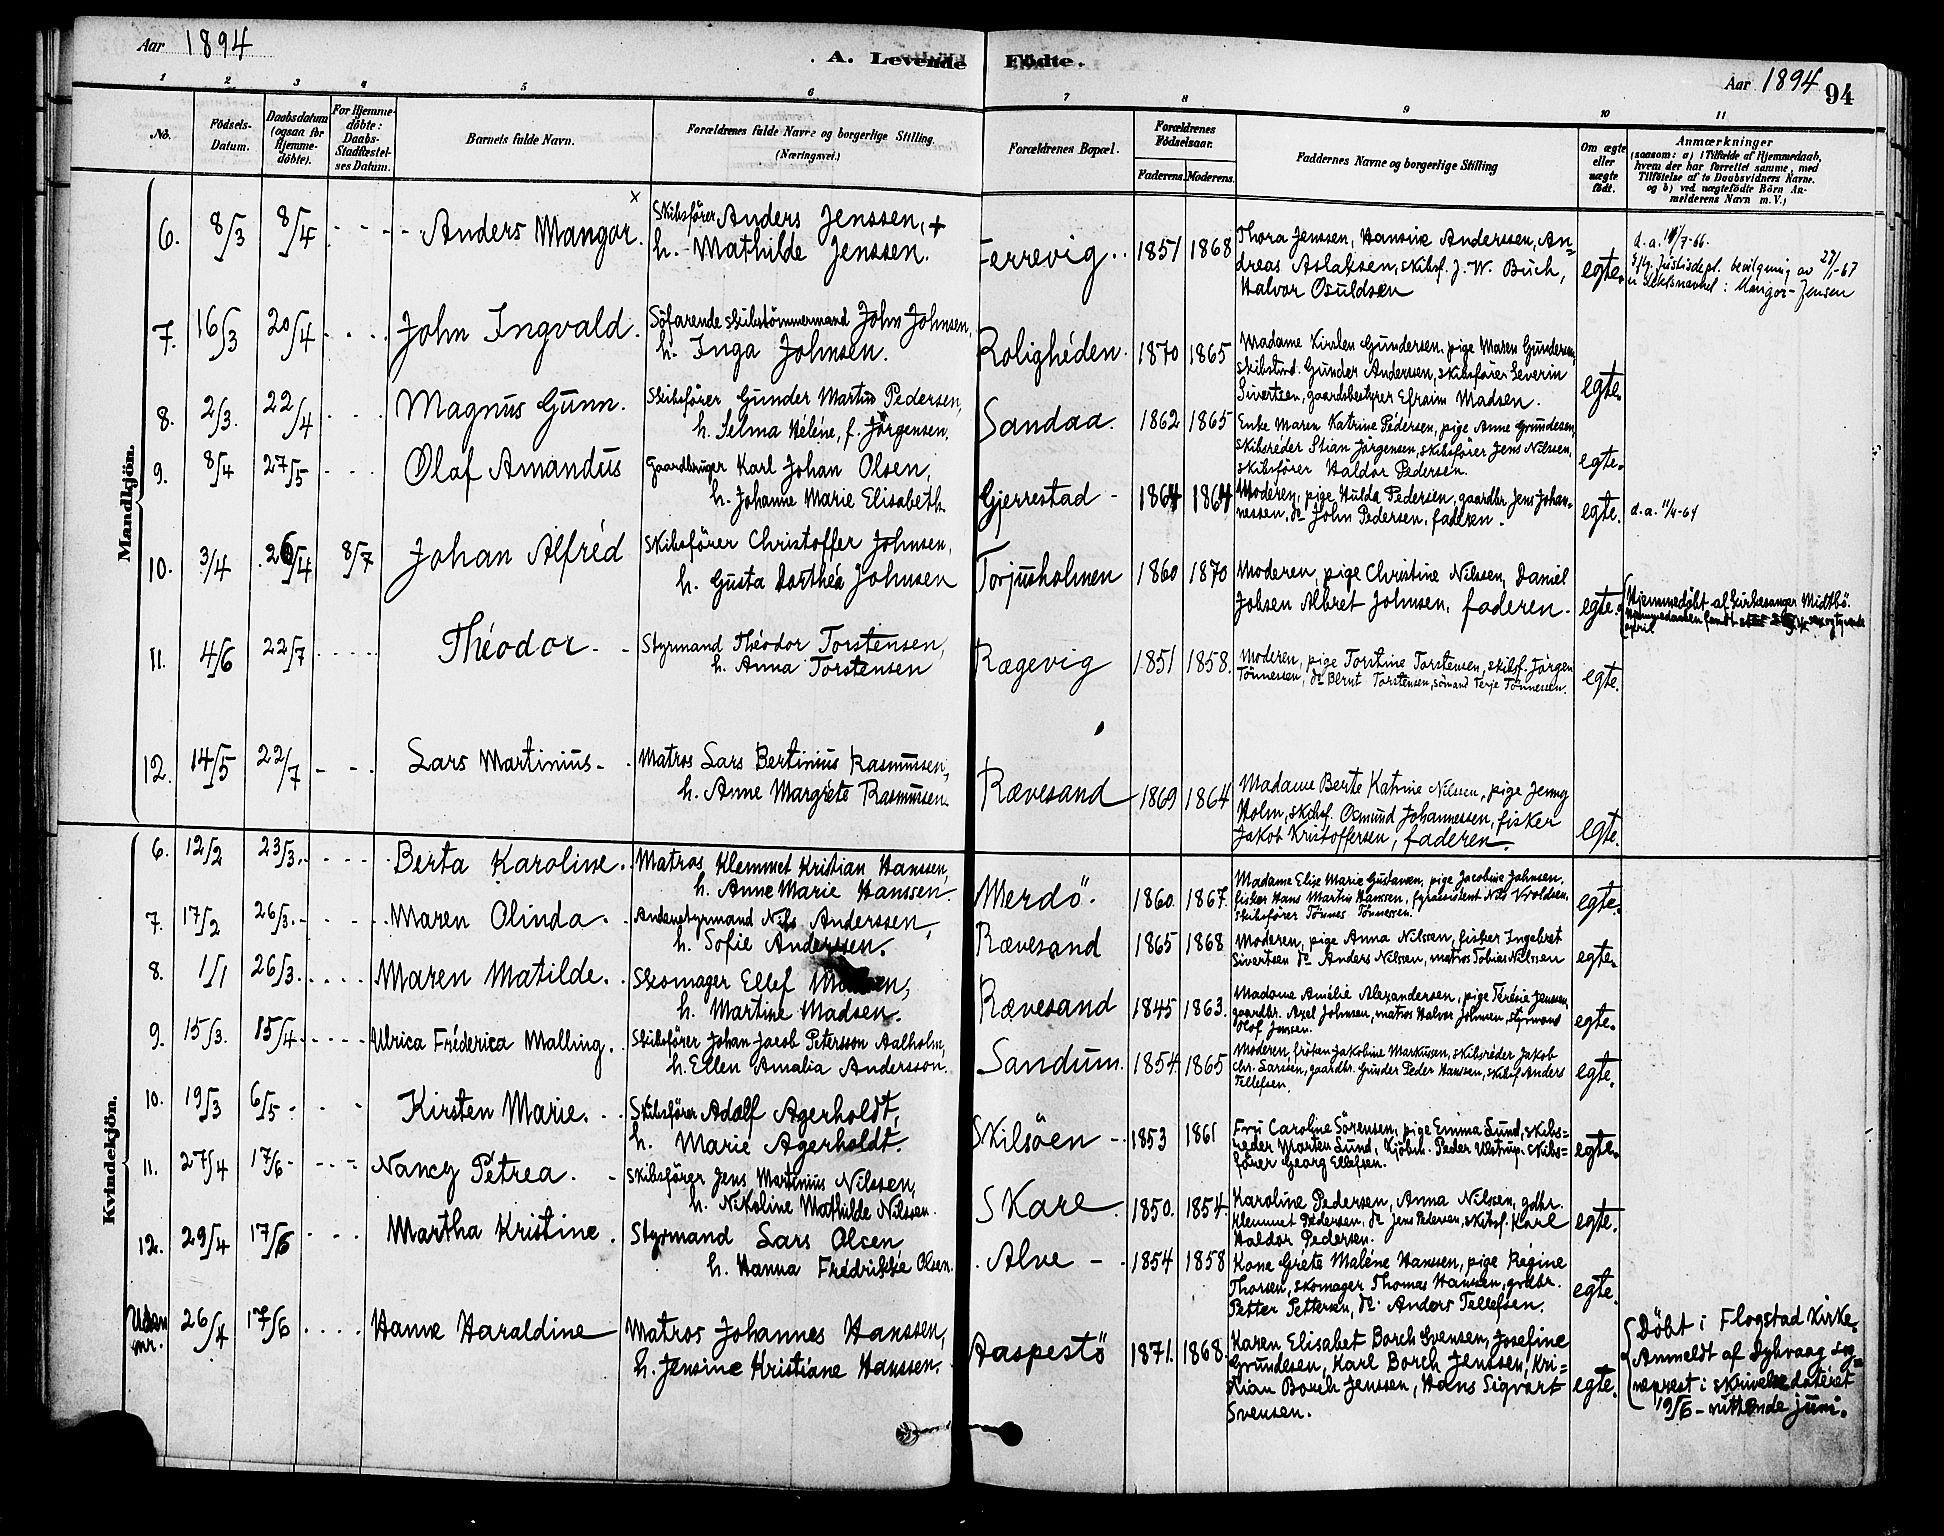 Aar 1894
A. Levende Födte.
Aar 1894 94
1 2 3 4 5 6 7 8 9 10 11
No.
Födsels-
Datum.
Daabsdatum
(ogsaa for
Hjemme-
döbte).
For Hjemme-
döbte:
Daabs-
Stadfæstel-
ses Datum.
Barnets fulde Navn.
Forældrenes fulde Navne og borgerlige Stilling
(Næringsvei.)
Forældrenes Bopæl.
Forældrenes
Födselsaar.
Faderens. Moderens.
Faddernes Navne og borgerlige Stilling
Om ægte
eller
uægte
födt.
Anmærkninger
(saasom: a) i Tilfælde af Hjemmedaab,
hvem der har forrettet samme, med
Tilföielse af to Daabsvidners Navne.
og b) ved uægtefödte Börn An-
melderens Navn m.V.)
Mandkjön.
6. 8/3 8/4 - - - - Anders Mangor. x
Skibsförer Anders Jenssen, +
h. Mathilde Jenssen.
Ferrevig.. 1851 1868
Thora Jenssen, Hansine Anderssen, An=
dreas Aslaksen, skibsf. J. W. Buch,
Halvor Osuldsen
egte.
Iflg. Justisdepl. bevilgning av 27/1-67
er slektsnavnet: Mangor-Jensen
7. 16/3 20/4 John Ingvald.
Söfarende skibstömmermand John Johnsen,
h. Inga Johnsen.
Roligheden. 1870 1865
Madame Kirsten Gundersen, pige Maren Gundersen,
skibstmd. Gunder Anderssen, skibsförer Severin
Sivertsen, gaardsbestyrer Efraim Madsen.
egte.
8. 2/3. 22/4 Magnus Gunn.
Skibsförer Gunder Martin Pedersen,
h. Selma Héléne, f. Jörgensen.
Sandaa. 1862 1865
Enke Maren Katrine Pedersen, pige Anne Grundesen,
skibsréder Stian Jörgensen, skibsförer Jens Nilssen,
skibsförer Haldor Pedersen.
egte.
9. 8/4 27/5 Olaf Amandus
Gaardbruger Karl Johan Olsen,
h. Johanne Marie Elisabeth
Gjerrestad - 1864 1864
Moderen, pige Hulda Pedersen, gaardbr. Jens Johan-
nessen, do John Pedersen, faderen.
egte. d.a. 11/4-64
10. 3/4 26/4 8/7 Johan Alfréd
Skibsförer Christoffer Johnsen,
h. Gusta Dorthéa Johnsen
Torjusholmen 1860 1870
Moderen, pige Christine Nilssen, Daniel
Jobsen Albret Johnsen, faderen.
egte.
Hjemmedöbt af kirkesanger Midtbö.
11. 4/6 22/7 Théodor. -
Styrmand Théodor Torstensen,
h. Anna Torstensen
Rægevig 1851 1858.
Moderen, pige Torstine Torstensen, skibsf. Jörgen
Tönnessen, do Bernt Torstensen, sömand Terje Tönnessen.
egte.
12. 14/5 22/7 - - - Lars Martinius- .
Matros Lars Bertinius Rasmussen,
h. Anne Margréte Rasmussen
Rævesand 1869 1864
Madame Berte Katrine Nilssen, pige Jenny
Holm, skibsf. Osmund Johannessen, fisker
Jakob Kristoffersen, faderen.
egte.
Kvindekjön.
6. 12/2 23/3. Berta Karoline.
Matros Klemmet Kristian Hanssen,
h. Anne Marie Hanssen.
Merdö. 1860 1867.
Madame Elise Marie Gustavsen, pige Jacobine Johnsen,
fisker Hans Martin Hanssen, fyrassistent Nils Kroldsen,
skibsförer Tönnes Tönnessen.
egte.
7. 17/2 26/3. Maren Olinda.
Andenstyrmand Nils Anderssen,
h. Sofie Anderssen.
Rævesand 1865 1868
Moderen, pige Anna Nilssen, fisker Ingebret
Sivertsen do Anders Nilssen, matros Tobias Nilssen
egte.
8. 1/1 26/3. Maren Matilde.
Skomager Ellef Madsen,
h. Martine Madsen.
Rævesand 1845 1863.
Madame Amélie Alexandersen, pige Térésie Jenssen,
gaardbr. Axel Johnsen, matros Halvor Johnsen, styrmand
Olof Jensen.
egte.
9. 15/3. 15/4 Ulrica Fréderica Malling.
Skibsförer Johan Jacob Petersson Aalholm,
h. Ellen Amalia Andersson.
Sandum. 1854 1865
Moderen, fröken Jakobine Markussen, skibsréder Jakob
Chr. Larssen, gaardbr. Gunder Peder Hanssen, skibsf. Anders
Tellefsen.
egte.
10. 19/3 6/5 Kirsten Marie.
Skibsförer Adolf Agerholdt,
h. Marie Agerholdt.
Skilsöen - 1853 1861
Fru Caroline Sörensen, pige Emma Lund, skibs=
reder Morten Lund, kjöbm. Peder Ulstrup, skibs=
förer Georg Ellefsen.
egte.
11. 27/4 17/6 Nancy Pétrea.
Skibsförer Jens Martinius Nilssen,
h. Nikoline Mathilde Nilssen.
Skare. 1850. 1854
Karoline Pedersen, Anna Nilssen, gdbr.
Klemmet Pedersen, do Jens Pedersen, skibsf. Karl
Haldor Pedersen.
egte.
12. 29/4 17/6 Martha Kristine.
Styrmand Lars Olsen
h. Hanna Frédrikké Olsen.
Alve - 1854 1858
Kone Gréte Maléne Hanssen, pige Régine
Thorsen, skomager Thomas Hanssen, grdbr.
Petter Pettersen, do. Anders Tellefsen.
egte.
Uden
nr. 26/4 17/6 Hanne Haraldine
Matros Johannes Hanssen,
h. Jensine Kristiane Hanssen.
Aaspestö 1871. 1868.
Karen Elisabet Borch Svensen, Josefine
Grundesen, Karl Borch Jenssen, Kri=
stian Borch Jenssen, Hans Sigvart
Svensen.
egte.
Döbt i Flogstad Kirke.
Anmeldt af Dyhvaag sog=
neprest i skrivelse dateret
19/6 - nittende juni.